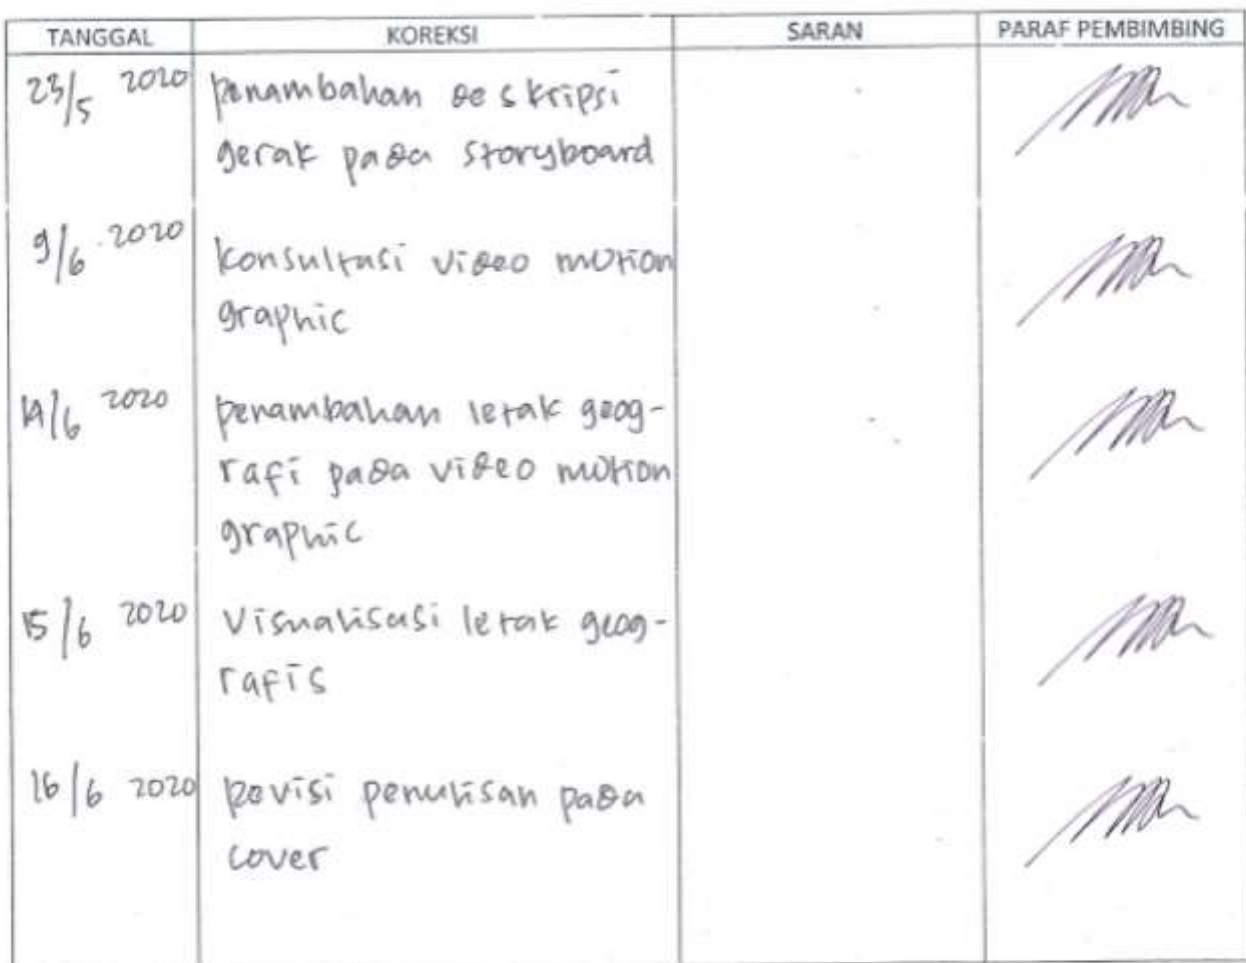 TANGGAL KOREKSI SARAN PARAF PEMBIMBING
23/5 2020 penambahan deskripsi
gerak pada storyboard
9/6 2020 konsultasi video motion
graphic
14/6 2020 penambahan letak geog-
rafi pada video motion
graphic
15/6 2020 Visualisasi letak geog-
rafis
16/6 2020 Revisi penulisan pada
cover